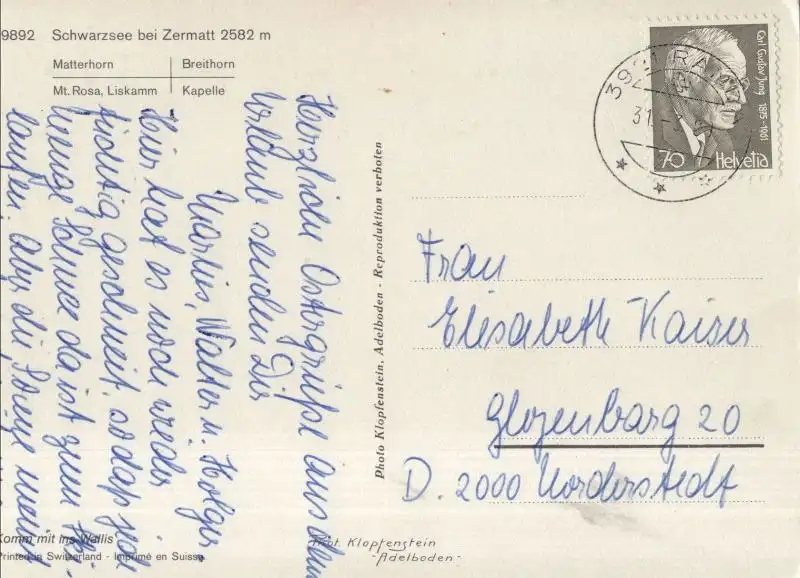 9892 Schwarzsee bei Zermatt 2582 m
Matterhorn
Breithorn
Mt. Rosa, Liskamm
Kapelle
Herzliche Ostergrüße aus dem
Urlaub senden Dir
Marlies, Walter u. Holger
Hier hat es noch wieder
tüchtig geschneit, so daß jede
Menge Schnee da ist zum Ski-
laufen. Aber die Sonne meint
Photo Klopfenstein, Adelboden - Reproduktion verboten
Carl Gustav Jung 1875-1961
70 Helvetia
Frau
Elisabeth Kaiser
Glojenbarg 20
D. 2000 Norderstedt
Komm mit ins Wallis
Printed in Switzerland - Imprimé en Suisse
Phot. Klopfenstein
-Adelboden-